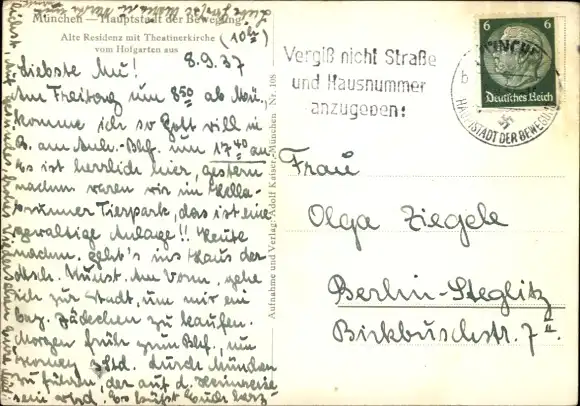 München — Hauptstadt der Bewegung
Alte Residenz mit Theatinerkirche
vom Hofgarten aus
(10h)
8.9.37
Liebste Mu!
Am Freitag um 8⁵⁰ ab Mü.,
komme ich so Gott will in
B. am Anh. Bhf. um 17⁴⁰ an.
Es ist herrlich hier, gestern
nachm. waren wir im Hella-
brunner Tierpark, das ist eine
gewaltige Anlage!! Heute
nachm. geht's ins Haus der
dtsch. Kunst. Am Vorm. gehe
ich zur Stadt, um mir ein
Jäckchen zu kaufen.
Morgen früh zum Bhf., um
Std. durch München
zu führen, der auf d. Heimreise
sein wird. Es küßt Euch herz-
Aufnahme und Verlag: Adolf Kaiser, München Nr. 108
Vergiß nicht Straße
und Hausnummer
anzugeben!
MÜNCHEN
b
HAUPTSTADT DER BEWEGUNG
6 6
Deutsches Reich
Frau
Olga Ziegele
Berlin-Steglitz
Birkbuschstr. 7 II